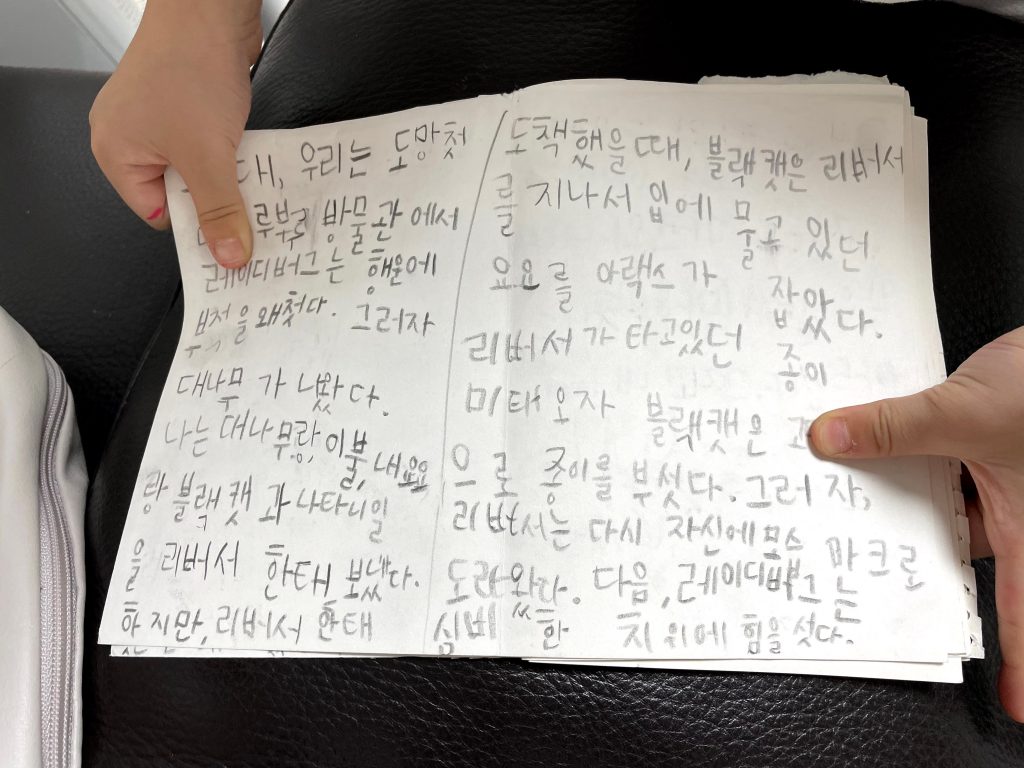 대, 우리는 도망첫
루부루 방물관 에서
레이디버그는 행운에
부적을 왜첫다. 그러자
대나무 가 나왔다.
나는 대나무랑, 이불, 내요요
랑 블랙 캣 과 나타니일
을 리버서 한태 보냈다.
하지만, 리버서 한태
도착했을 때, 블랙캣은 리버서
를 지나서 입에 물고 있던
요요를 아랙스 가 잡았다.
리버서가 타고있던 종이
미태 오자 블랙캣은
으로 종이를 부섯다. 그러 자,
리버서는 다시 자신에 모스
도라왔다. 다음, 레이디버그는 만크로
심벼 한 치위에 힘을 섯다.